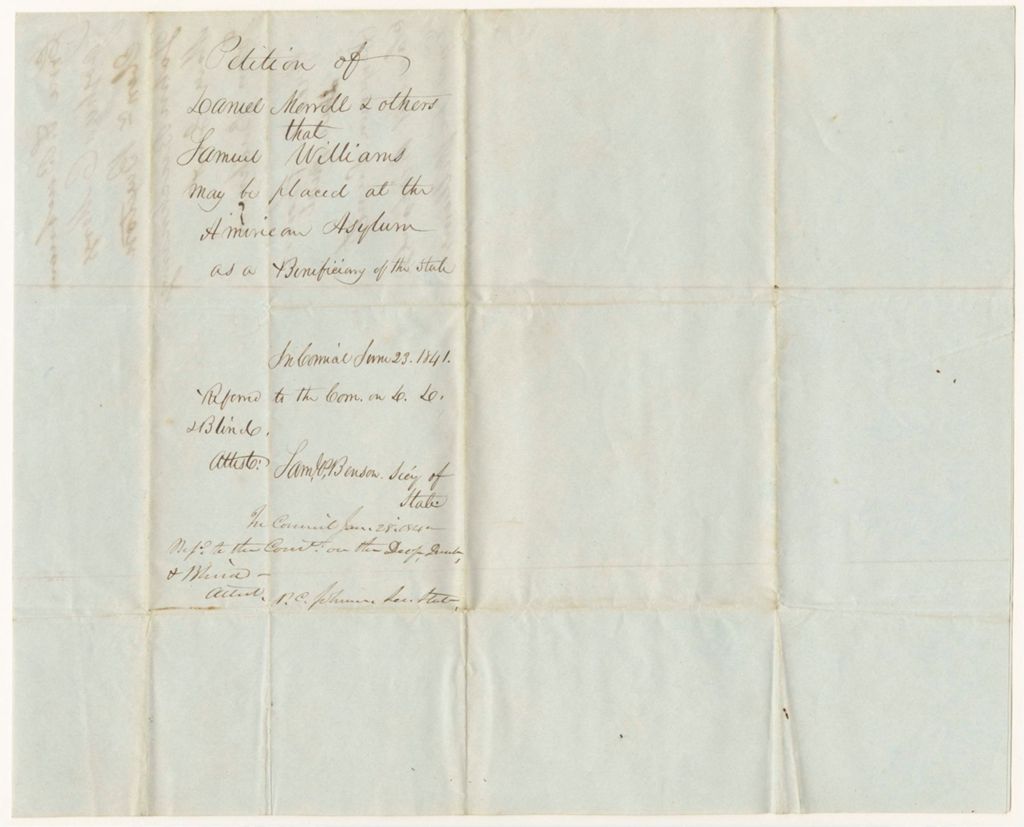 Petition of
Daniel Merrill & others
that
Samuel Williams
may be placed at the
American Asylum
as a Beneficiary of the State
In Council June 23. 1841.
Referred to the Com. on D. D.
& Blind.
Attest: Saml. P. Benson. Secy of
State
In Council Jan. 28
Refd. to the Comt. on the Deaf, Dumb,
& Blind –
Attest, P. C. Johnson Sec. State,